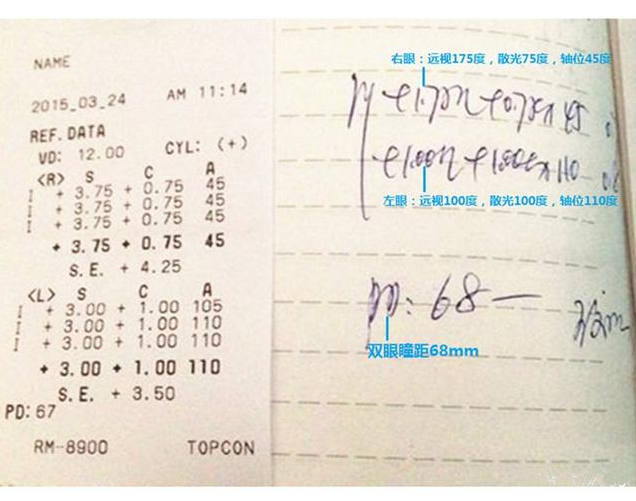 NAME
2015_03_24 AM 11:14
REF. DATA
VD: 12.00 CYL: (+)
<R> S C A
I + 3.75 + 0.75 45
I + 3.75 + 0.75 45
I + 3.75 + 0.75 45
+ 3.75 + 0.75 45
S.E. + 4.25
<L> S C A
I + 3.00 + 1.00 105
I + 3.00 + 1.00 110
I + 3.00 + 1.00 110
+ 3.00 + 1.00 110
S.E. + 3.50
PD: 67
RM-8900 TOPCON
右眼：远视175度，散光75度，轴位45度
+1.75 +0.75x45
+1.00 +1.00x110
左眼：远视100度，散光100度，轴位110度
68
双眼瞳距68mm